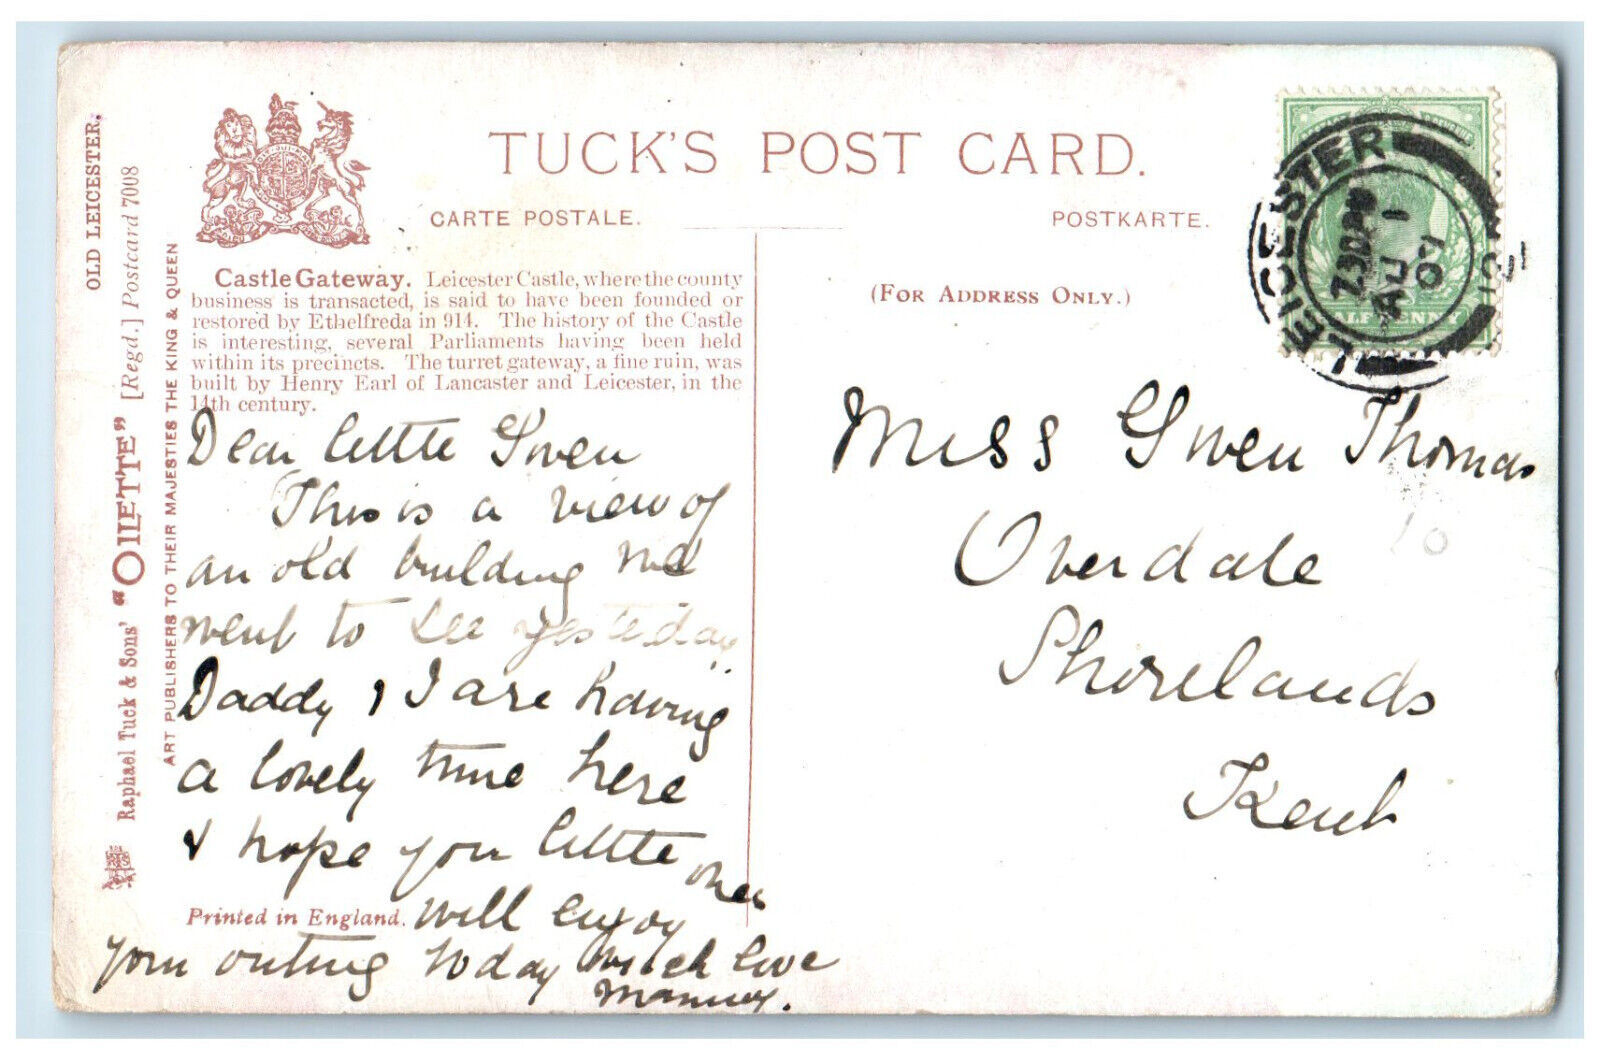 TUCK'S POST CARD.
CARTE POSTALE.
POSTKARTE.
(FOR ADDRESS ONLY.)
OLD LEICESTER.
Raphael Tuck & Sons' "OILETTE" [Regd.] Postcard 7008
ART PUBLISHERS TO THEIR MAJESTIES THE KING & QUEEN
Castle Gateway. Leicester Castle, where the county
business is transacted, is said to have been founded or
restored by Ethelfreda in 914. The history of the Castle
is interesting, several Parliaments having been held
within its precincts. The turret gateway, a fine ruin, was
built by Henry Earl of Lancaster and Leicester, in the
14th century.
Dear little Gwen
This is a view of
an old building we
went to see yesterday
Daddy & I are having
a lovely time here
& hope you little ones
Printed in England.
will enjoy
your outing today much love
Mammy.
Miss Gwen Thomas
Overdale
Shorelands
Kent
LEICESTER
7.30PM
AU 1
07
HALFPENNY